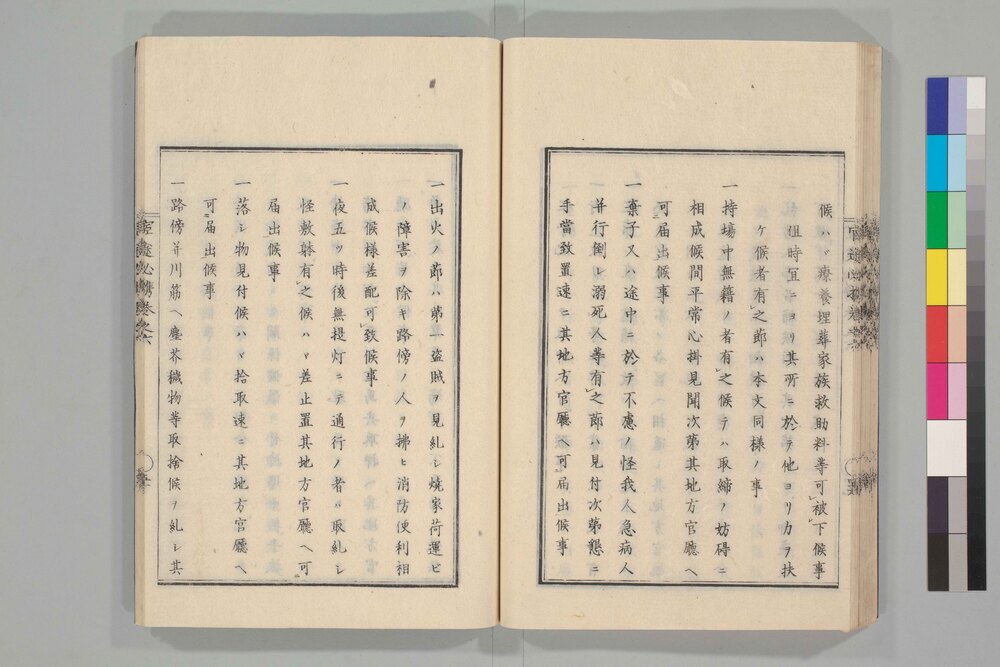 候ハヾ療養埋葬家族救助料等可被下候事
但時宜ニヨリ其所ニ於テ他ヨリ力ヲ扶
ケ候者有之節ハ本文同様ノ事
一持場中無籍ノ者有之候テハ取締ノ妨碍ニ
相成候間平常心掛見聞次第其地方官廳ヘ
可届出候事
一棄子又ハ途中ニ於テ不慮ノ怪我人急病人
并行倒レ溺死人等有之節ハ見付次第懇ニ
手當致置速ニ其地方官廳ヘ可届出候事
一出火ノ節ハ第一盗賊ヲ見糺シ焼家荷運ヒ
ノ障害ヲ除キ路傍ノ人ヲ拂ヒ消防便利相
成候様差配可致候事
一夜五ツ時後無提灯ニテ通行ノ者ハ取糺シ
怪敷躰有之候ハヾ差止置其地方官廳ヘ可
届出候事
一落シ物見付候ハヾ拾取速ニ其地方官廳ヘ
可届出候事
一路傍并川筋ヘ塵芥穢物等取捨候ヲ糺シ其